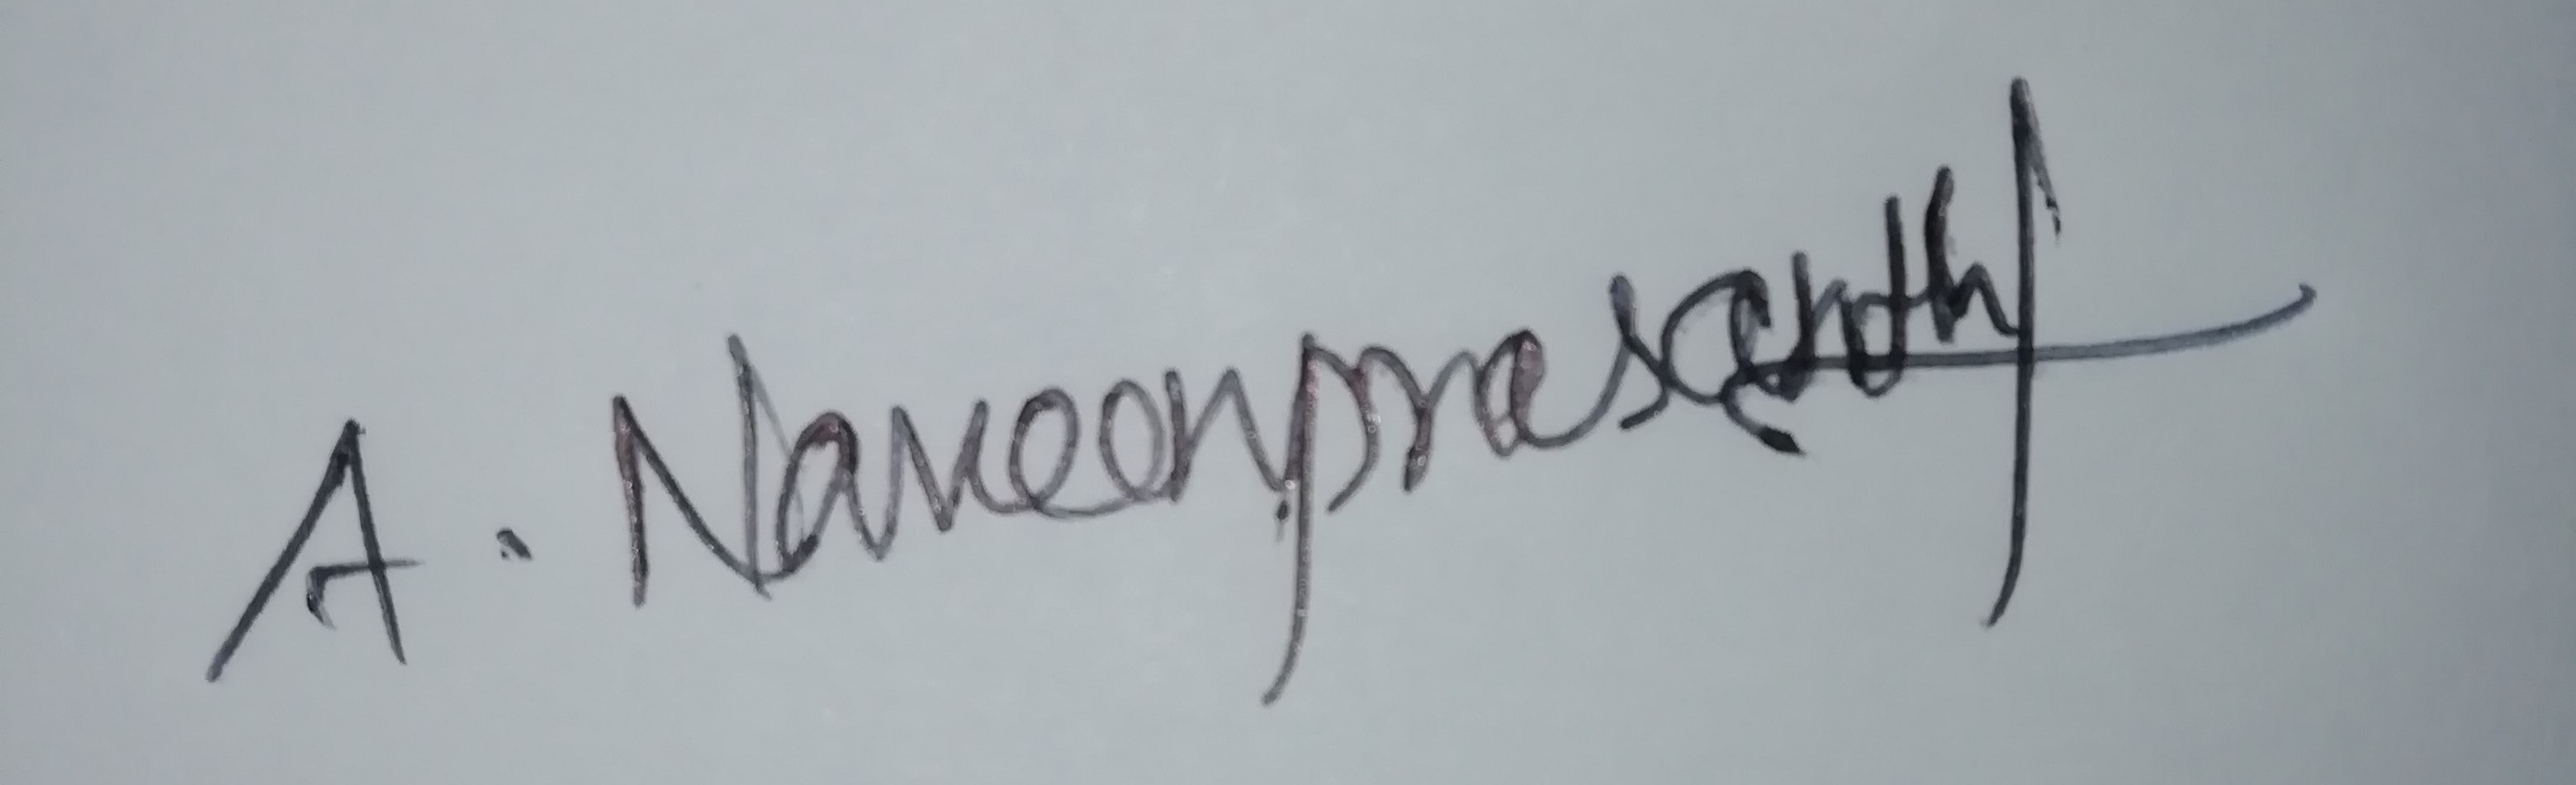 A. Naveenprasanth